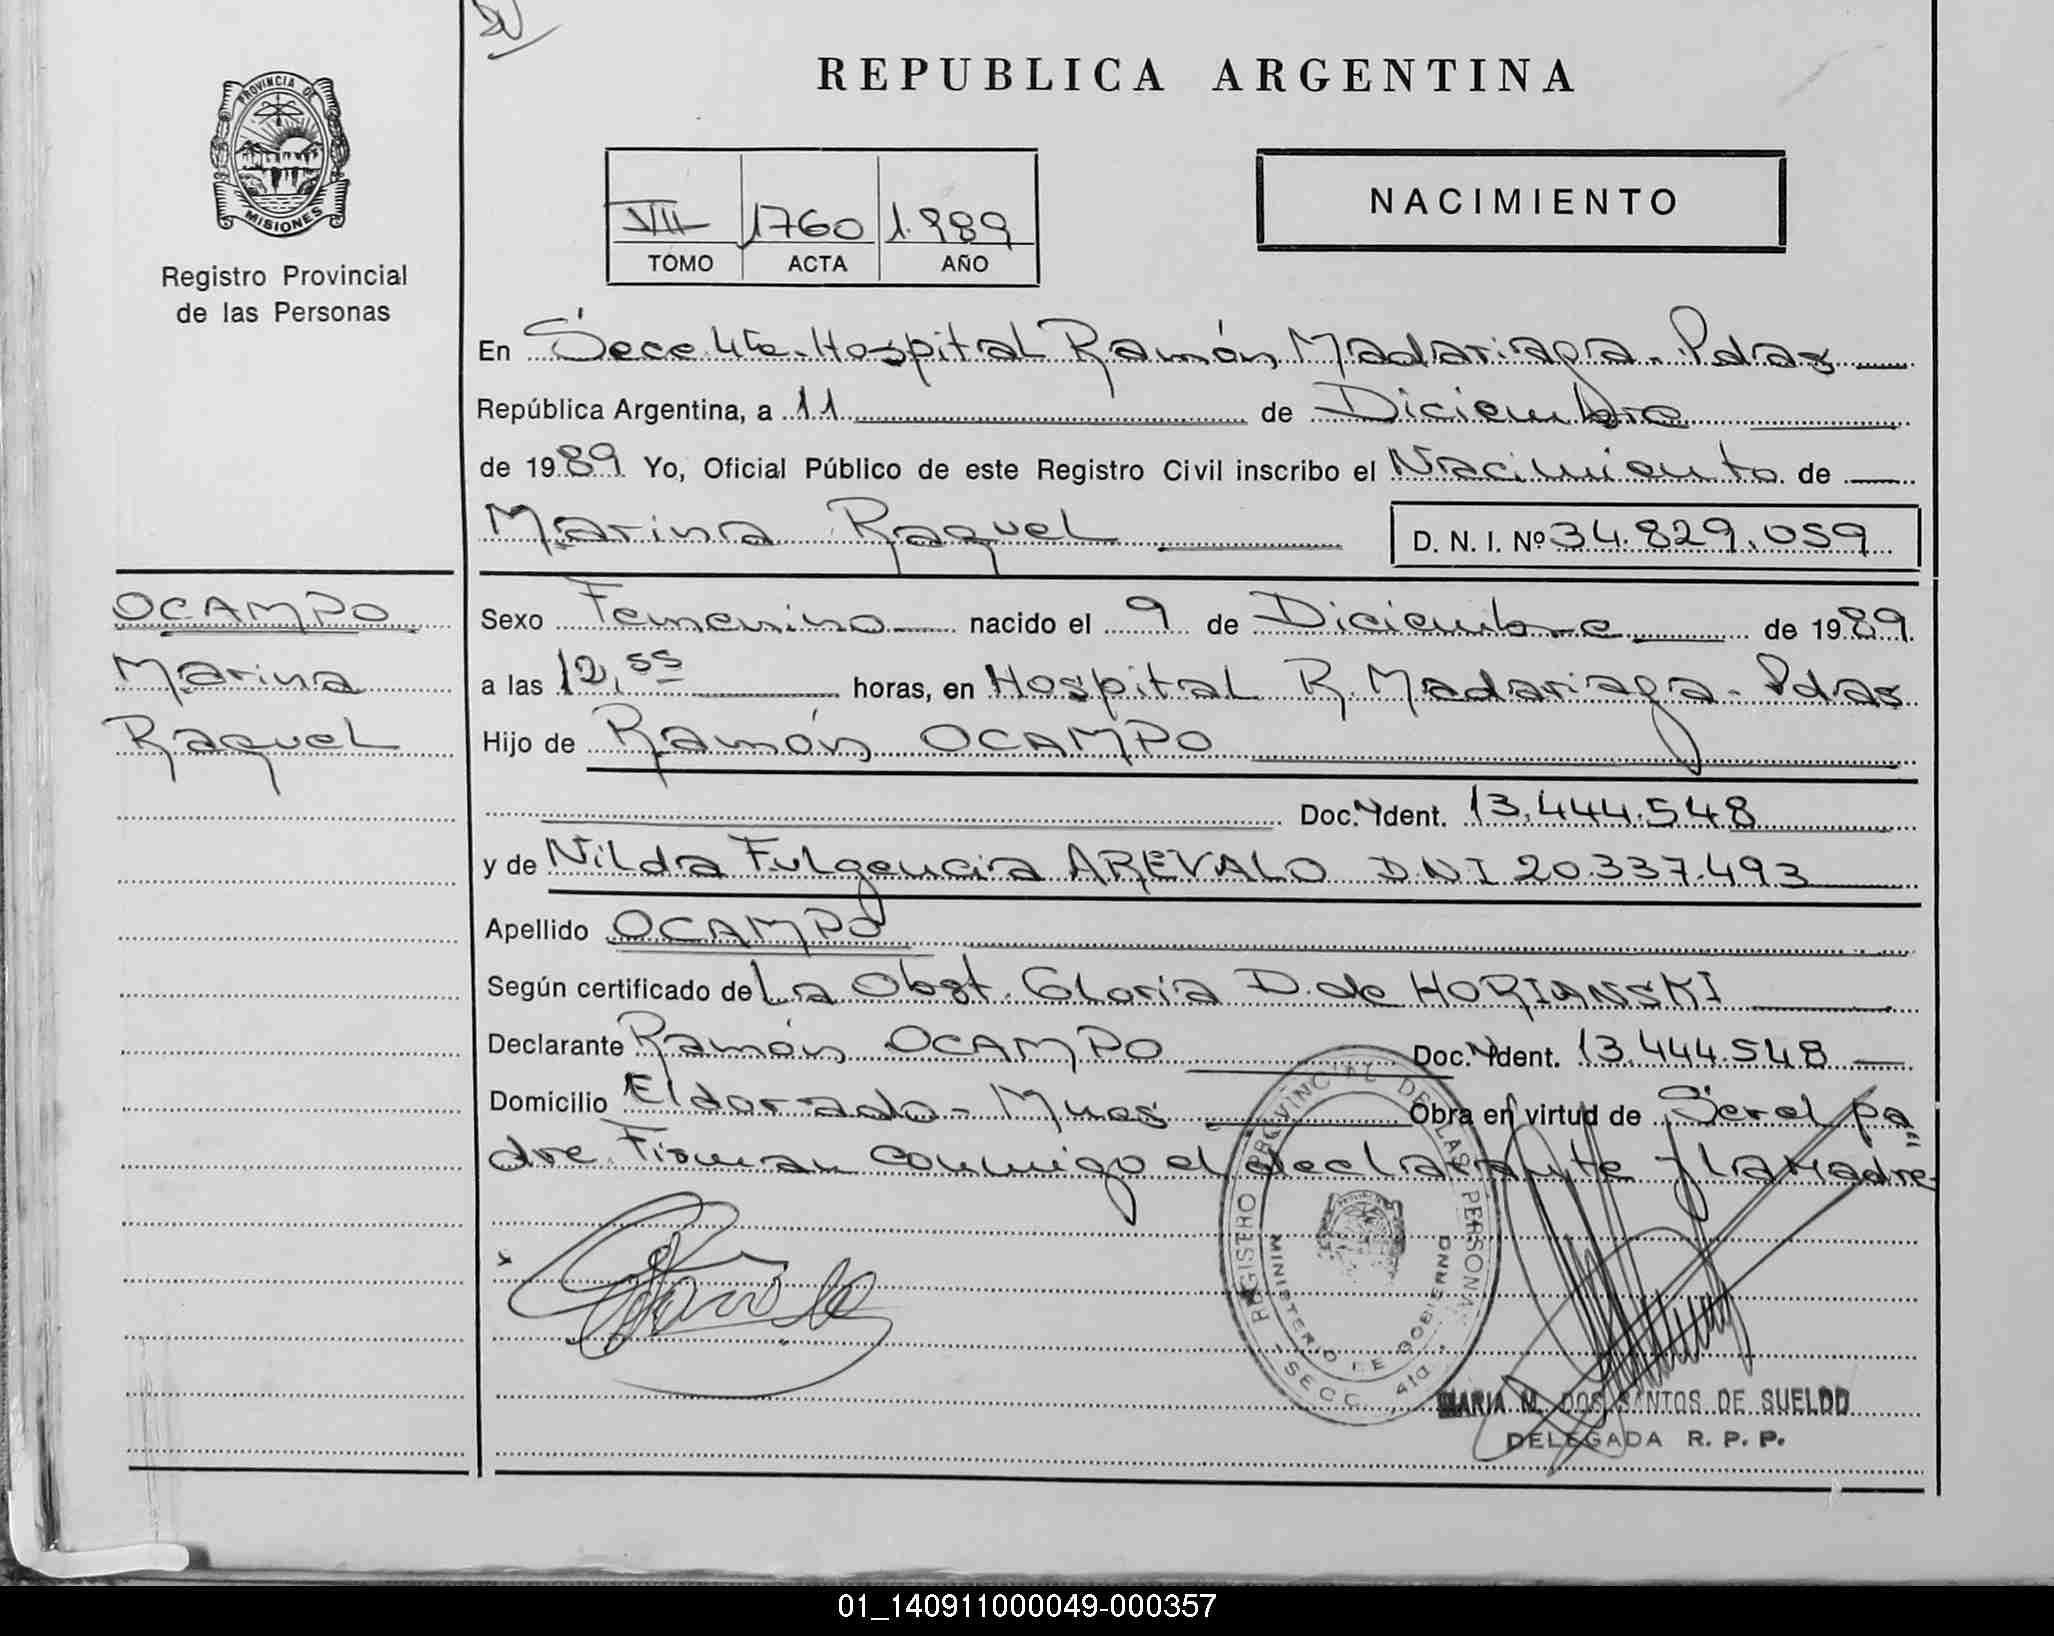 REPUBLICA ARGENTINA
PROVINCIA DE
MISIONES
Registro Provincial
de las Personas
VII 1760 1.989
TOMO ACTA AÑO
NACIMIENTO
En Secc 4ta. Hospital Ramón Madariaga - Pdas
República Argentina, a 11 de Diciembre
de 1989 Yo, Oficial Público de este Registro Civil inscribo el Nacimiento de
Marina Raquel D. N. I. Nº 34.829.059
OCAMPO
Marina
Raquel
Sexo Femenino nacido el 9 de Diciembre de 1989.
a las 12,55 horas, en Hospital R. Madariaga - Pdas
Hijo de Ramón OCAMPO
Doc. Ident. 13.444.548
y de Nilda Fulgencia AREVALO DNI 20.337.493
Apellido OCAMPO
Según certificado de La Obst. Gloria D. de HORIANSKI
Declarante Ramón OCAMPO Doc. Ident. 13.444.548
Domicilio Eldorado - Mnes Obra en virtud de Ser el pa
dre. Firman conmigo el declarante y la Madre
x
REGISTRO PROVINCIAL DE LAS PERSONAS
MINISTERIO DE GOBIERNO
SECC. 4ta
MARIA M. DOS SANTOS DE SUELDO
DELEGADA R. P. P.
01_140911000049-000357